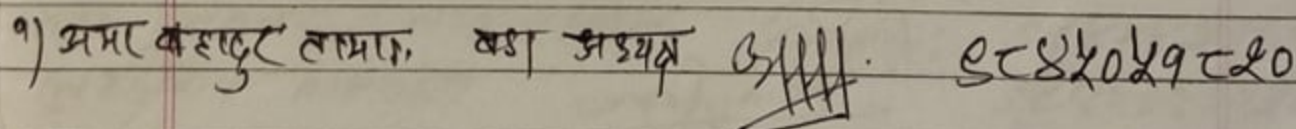 १) अमर बहादुर तामाङ, वडा अध्यक्ष ९८४५०५१८२०